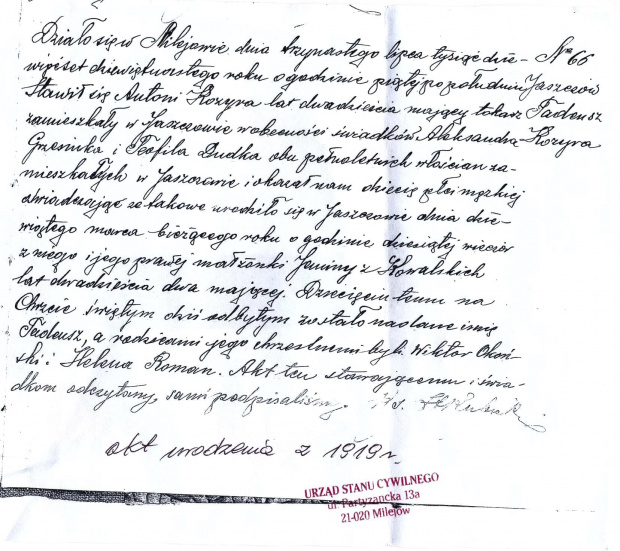 Działo się w Milejowie dnia trzynastego lipca tysiąc dzie- Nr 66
więćset dziewiętnastego roku o godzinie piątej po południu Jaszczów
Stawił się Antoni Kozyra lat dwadzieścia mający tokarz Tadeusz
zamieszkały w Jaszczowie w obecności świadków Aleksandra Kozyra
i Teofila Dudka obu pełnoletnich włościan za-
mieszkałych w Jaszczowie i okazał nam dziecię płci męzkiej
oświadczając że takowe urodziło się w Jaszczowie dnia dzie-
wiątego marca bieżącego roku o godzinie dziesiątej wieczór
z niego i jego prawej małżonki Janiny z Kowalskich
lat dwadzieścia dwa mającej. Dziecięciu temu na
Chrzcie świętym dziś odbytym zostało nadane imię
Tadeusz, a rodzicami jego chrzestnemi byli Wiktor Okoń-
ski i Helena Roman. Akt ten stawającemu i świa-
dkom odczytany, sami podpisaliśmy.
akt urodzenia z 1919 r.
URZĄD STANU CYWILNEGO
ul. Partyzancka 13a
21-020 Milejów